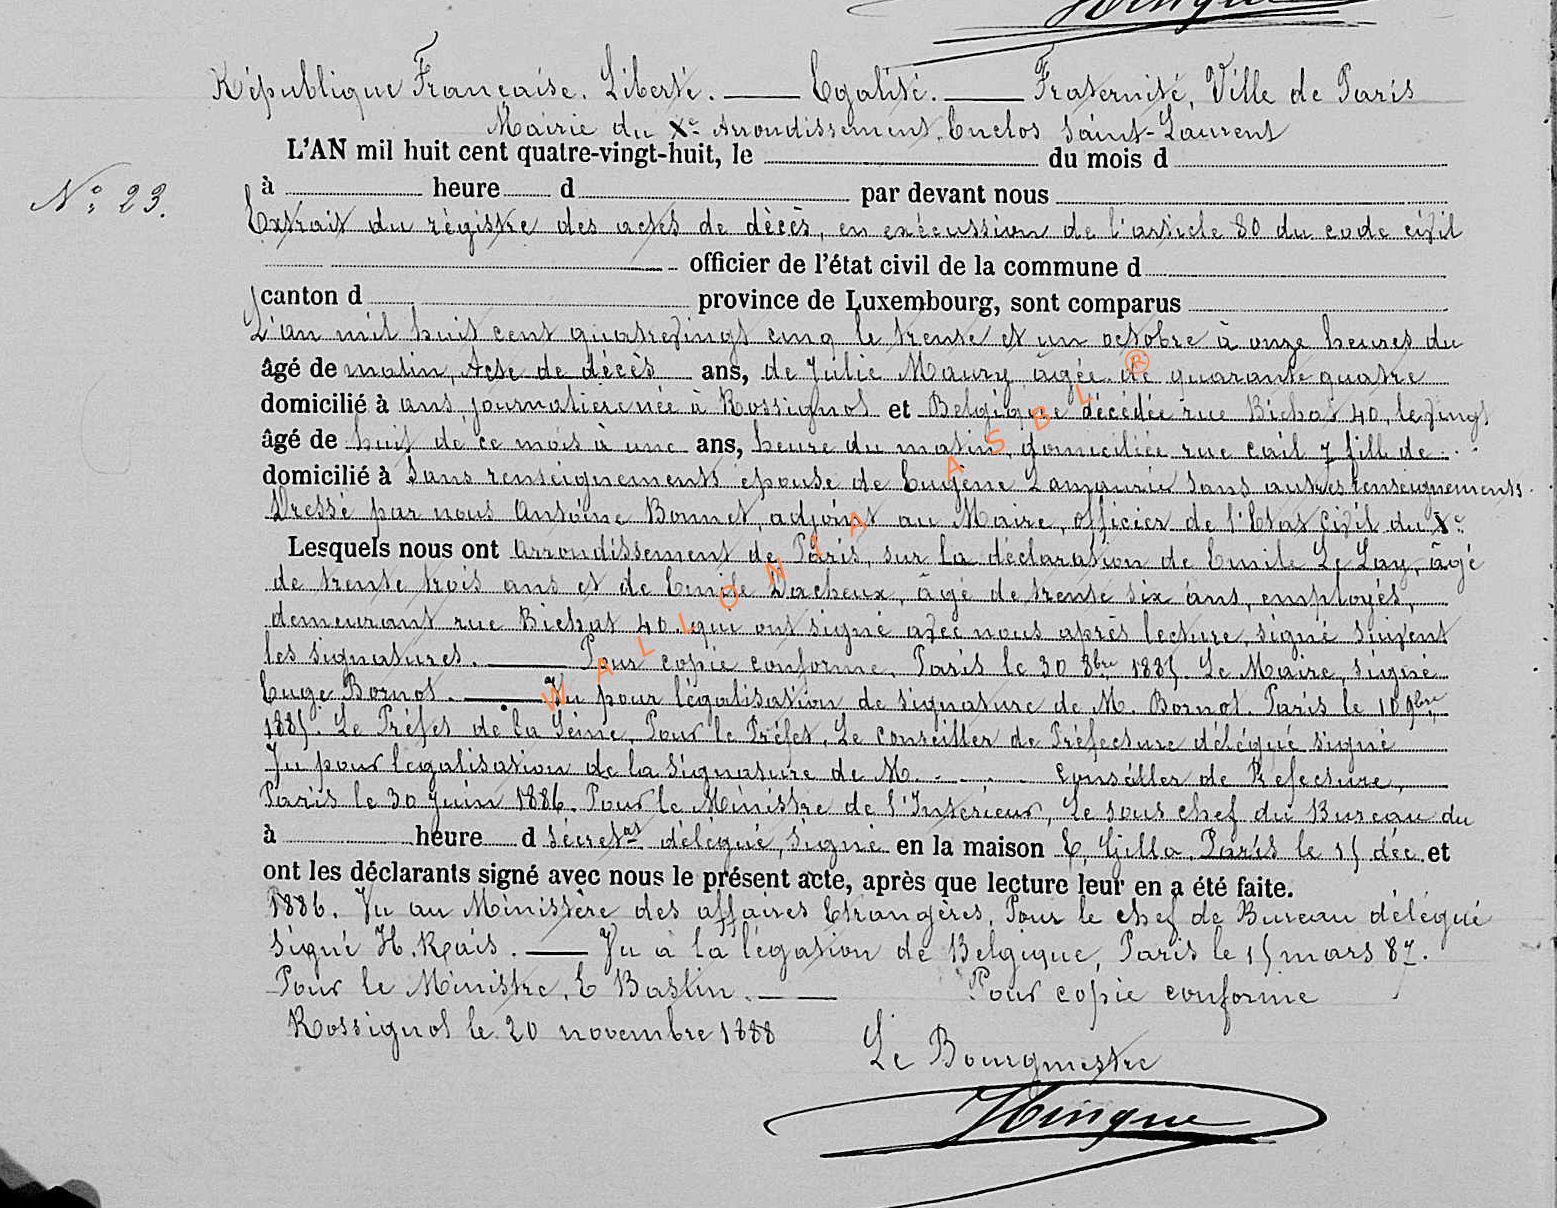 République Française. Liberté. — Egalité. — Fraternité, Ville de Paris
Mairie du Xe Arrondissement. Enclos Saint-Laurent
L'AN mil huit cent quatre-vingt-huit, le du mois d
No: 23.
à heure d par devant nous
Extrait du régistre des actes de décès, en exécussion de l'article 80 du code civil
officier de l'état civil de la commune d
canton d province de Luxembourg, sont comparus
L'an mil huit cent quatrevingt cinq le trente et un octobre à onze heures du
âgé de matin, Acte de décès ans, de Julie Maury âgée de quarante quatre
domicilié à ans journalière née à Rossignol et Belgique décédée rue Bichat 40, le vingt
âgé de huit de ce mois à une ans, heure du matin, domiciliée rue cail 7 fille de
domicilié à sans renseignements épouse de Eugène sans autres renseignements.
Dressé par nous Antoine Bonnet, adjoint au Maire, officier de l'Etat Civil du Xe
Lesquels nous ont arrondissement de Paris, sur la déclaration de Emile Le Lay, âgé
de trente trois ans et de Emile Dacheux, âgé de trente six ans, employés,
demeurant rue Bichat 40 qui ont signé avec nous après lecture, signé suivent
les signatures. — Pour copie conforme, Paris le 30 8bre 1885. Le Maire, signé
Euge Bornot. — Vu pour légalisation de signature de M. Bornot. Paris le 10 9bre
1885. Le Préfet de la Seine, Pour le Préfet, Le conseiller de Préfecture délégué signé
Vu pour légalisation de la signature de M. - - - conseiller de Préfecture,
Paris le 30 Juin 1886. Pour le Ministre de l'Intérieur, Le sous chef du Bureau du
à heure d délégué, signé en la maison E. Paris le 15 déc. et
ont les déclarants signé avec nous le présent acte, après que lecture leur en a été faite.
1886. Vu au Ministère des affaires Etrangères, Pour le chef de Bureau délégué
signé H. — Vu à la légation de Belgique, Paris le 15 mars 87.
Pour le Ministre, E Baslin. — Pour copie conforme
Rossignol le 20 novembre 1888
Le Bourgmestre
Hinque
WALLONIA ASBL ®